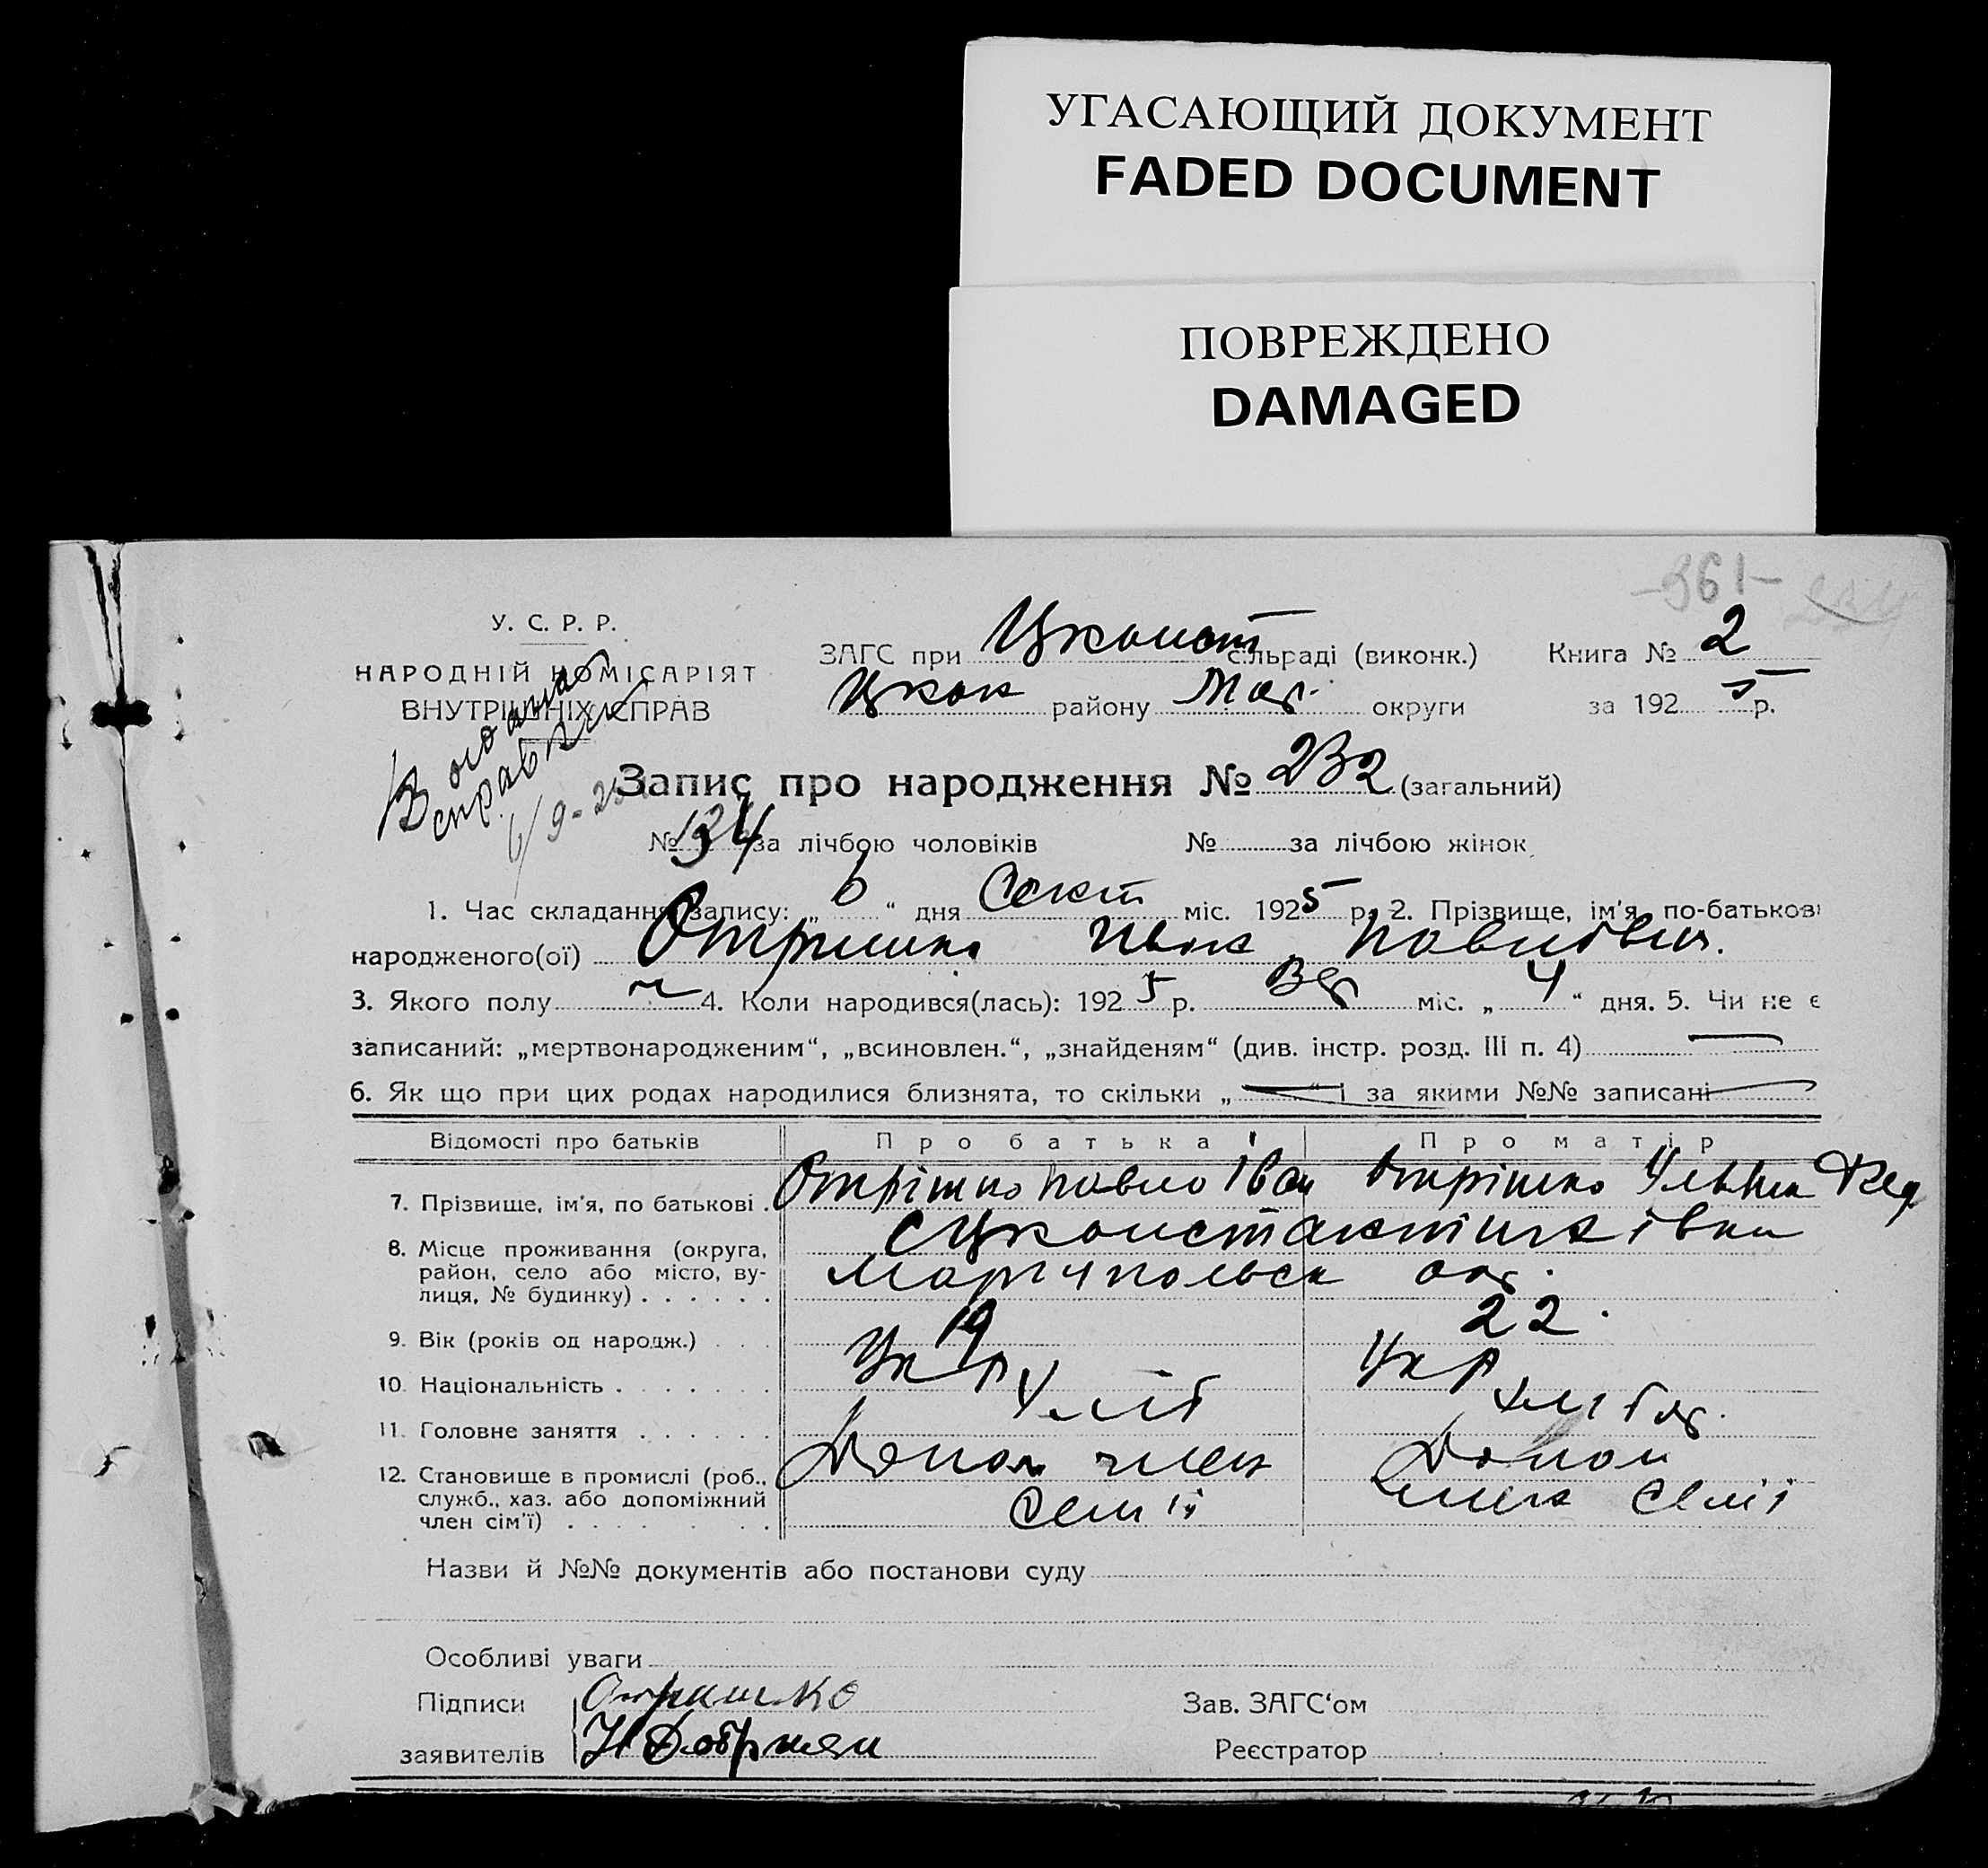 УГАСАЮЩИЙ ДОКУМЕНТ
FADED DOCUMENT
ПОВРЕЖДЕНО
DAMAGED
-361-
У. С. Р. Р.
НАРОДНІЙ КОМІСАРІЯТ
ВНУТРІШНІХ СПРАВ
ЗАГС при Цконст сільраді (виконк.) Книга № 2
району Мар. округи за 1925 р.
справку
6/9-25
Запис про народження № 232 (загальний)
№ 134 за лічбою чоловіків № за лічбою жінок
1. Час складання запису: „6“ дня Сент міс. 1925 р. 2. Прізвище, ім'я, по-батькові
народженого(ої) Отришко Иван Павлович.
3. Якого полу ч 4. Коли народився(лась): 1925 р. Вер міс. „4“ дня. 5. Чи не є
записаний: „мертвонародженим“, „всиновлен.“, „знайденям“ (див. інстр. розд. III п. 4)
6. Як що при цих родах народилися близнята, то скільки „ “ і за якими №№ записані
Відомості про батьків Про батька Про матір
7. Прізвище, ім'я, по батькові . Отрішко Павло Іван Отрішко Ульяна Фед
8. Місце проживання (округа, район, село або місто, вулиця, № будинку) . . . . . . Цконстантинівка
Маріупольск окр.
9. Вік (років од народж.) . . . 19 22.
10. Національність . . . . . . . Укр Укр
11. Головне заняття . . . . . . Хліб Хлібор.
12. Становище в промислі (роб., служб., хаз. або допоміжний член сім'ї) . . . . . . . Допом член Семії Допом член Семії
Назви й №№ документів або постанови суду
Особливі уваги
Підписи Отришко Зав. ЗАГС'ом
заявителів Реєстратор